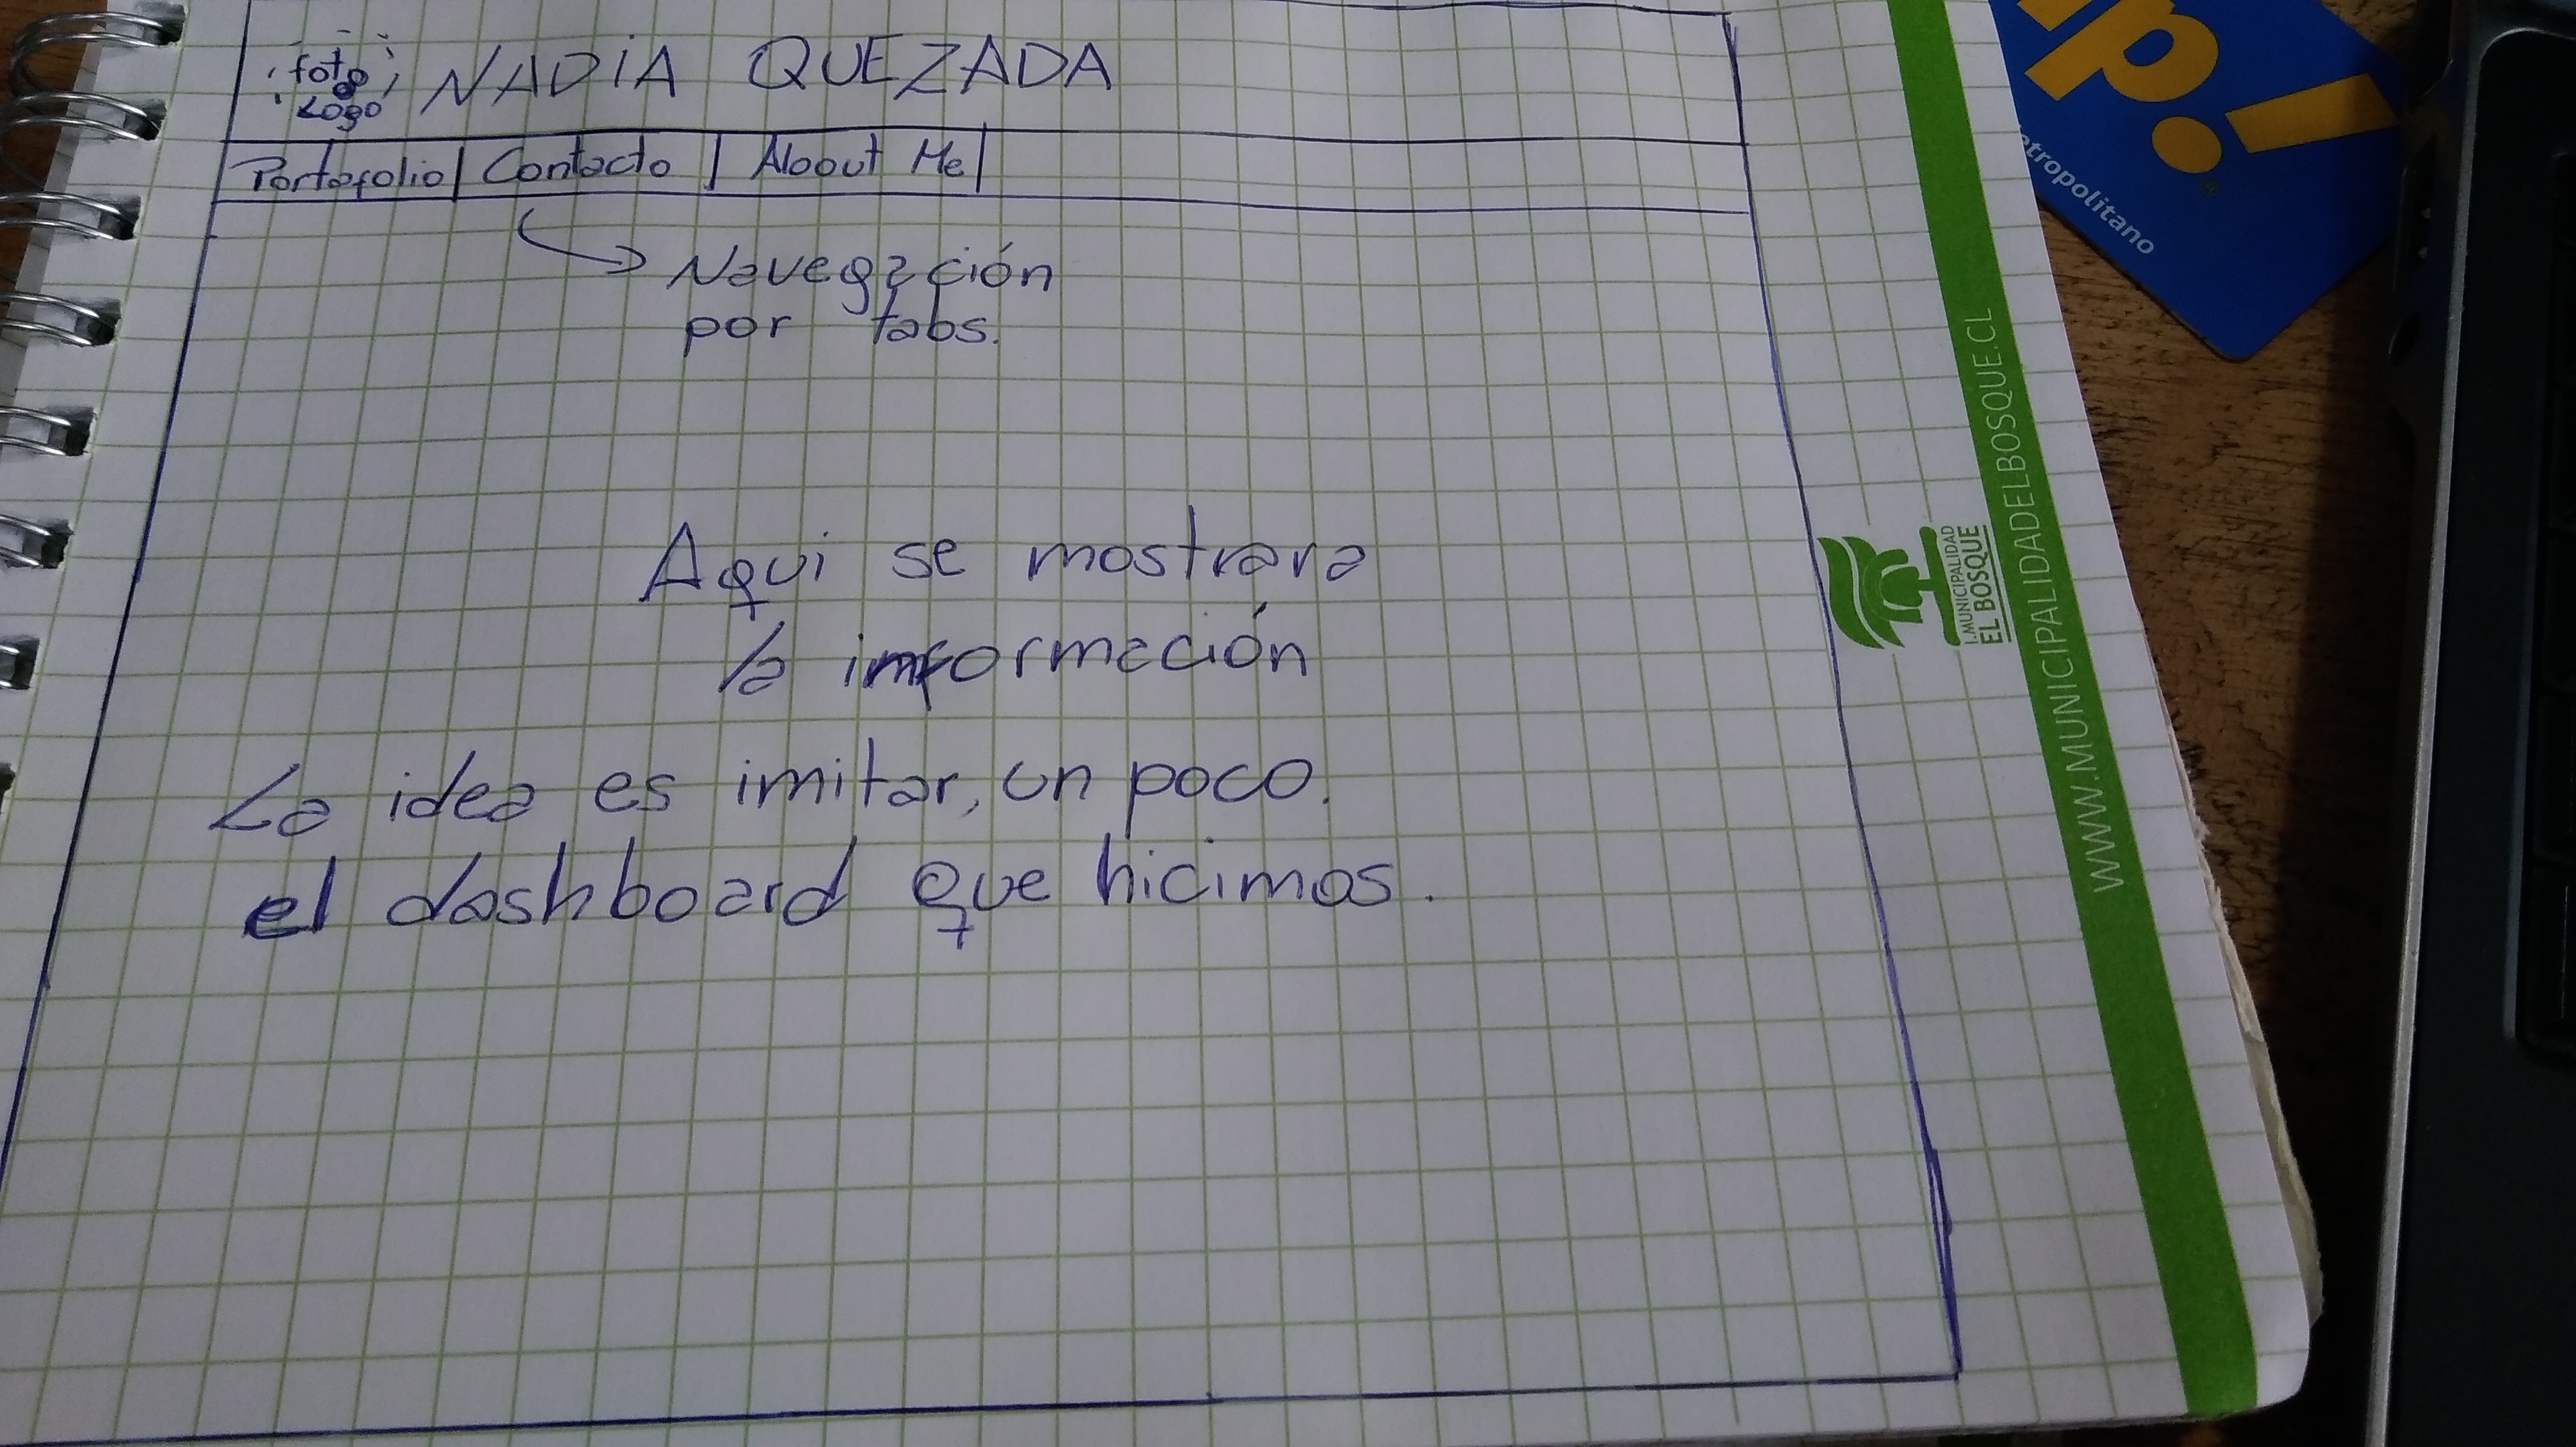 foto
o
Logo
NADiA QUEZADA
Portafolio | Contacto | About Me |
Navegación
por tabs.
Aqui se mostrara
la información
La idea es imitar, un poco.
el dashboard que hicimos.
ip!
etropolitano
I. MUNICIPALIDAD
EL BOSQUE
WWW.MUNICIPALIDADELBOSQUE.CL